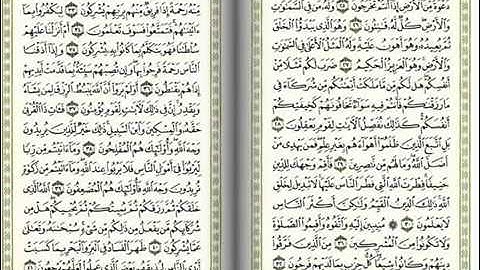 دَعْوَةً مِّنَ الْأَرْضِ إِذَا أَنتُمْ تَخْرُجُونَ ٢٥ وَلَهُ مَن فِي السَّمَٰوَٰتِ
وَالْأَرْضِ كُلٌّ لَّهُ قَٰنِتُونَ ٢٦ وَهُوَ الَّذِي يَبْدَؤُا الْخَلْقَ
ثُمَّ يُعِيدُهُ وَهُوَ أَهْوَنُ عَلَيْهِ وَلَهُ الْمَثَلُ الْأَعْلَىٰ فِي السَّمَٰوَٰتِ
وَالْأَرْضِ وَهُوَ الْعَزِيزُ الْحَكِيمُ ٢٧ ضَرَبَ لَكُم مَّثَلًا مِّنْ
أَنفُسِكُمْ هَل لَّكُم مِّن مَّا مَلَكَتْ أَيْمَٰنُكُم مِّن شُرَكَاءَ فِي
مَا رَزَقْنَٰكُمْ فَأَنتُمْ فِيهِ سَوَاءٌ تَخَافُونَهُمْ كَخِيفَتِكُمْ
أَنفُسَكُمْ كَذَٰلِكَ نُفَصِّلُ الْآيَٰتِ لِقَوْمٍ يَعْقِلُونَ ٢٨
بَلِ اتَّبَعَ الَّذِينَ ظَلَمُوا أَهْوَاءَهُم بِغَيْرِ عِلْمٍ فَمَن يَهْدِي مَنْ
أَضَلَّ اللَّهُ وَمَا لَهُم مِّن نَّٰصِرِينَ ٢٩ فَأَقِمْ وَجْهَكَ لِلدِّينِ
حَنِيفًا فِطْرَتَ اللَّهِ الَّتِي فَطَرَ النَّاسَ عَلَيْهَا لَا تَبْدِيلَ لِخَلْقِ
اللَّهِ ذَٰلِكَ الدِّينُ الْقَيِّمُ وَلَٰكِنَّ أَكْثَرَ النَّاسِ
لَا يَعْلَمُونَ ٣٠ مُنِيبِينَ إِلَيْهِ وَاتَّقُوهُ وَأَقِيمُوا الصَّلَوٰةَ
وَلَا تَكُونُوا مِنَ الْمُشْرِكِينَ ٣١ مِنَ الَّذِينَ فَرَّقُوا
دِينَهُمْ وَكَانُوا شِيَعًا كُلُّ حِزْبٍ بِمَا لَدَيْهِمْ فَرِحُونَ ٣٢
مِّنْهُ رَحْمَةً إِذَا فَرِيقٌ مِّنْهُم بِرَبِّهِمْ يُشْرِكُونَ ٣٣ لِيَكْفُرُوا بِمَا
ءَاتَيْنَٰهُمْ فَتَمَتَّعُوا فَسَوْفَ تَعْلَمُونَ ٣٤ أَمْ أَنزَلْنَا عَلَيْهِمْ
سُلْطَٰنًا فَهُوَ يَتَكَلَّمُ بِمَا كَانُوا بِهِ يُشْرِكُونَ ٣٥ وَإِذَا أَذَقْنَا
النَّاسَ رَحْمَةً فَرِحُوا بِهَا وَإِن تُصِبْهُمْ سَيِّئَةٌ بِمَا قَدَّمَتْ أَيْدِيهِمْ
إِذَا هُمْ يَقْنَطُونَ ٣٦ أَوَلَمْ يَرَوْا أَنَّ اللَّهَ يَبْسُطُ الرِّزْقَ لِمَن يَشَاءُ
وَيَقْدِرُ إِنَّ فِي ذَٰلِكَ لَآيَٰتٍ لِّقَوْمٍ يُؤْمِنُونَ ٣٧ فَـَٔاتِ ذَا الْقُرْبَىٰ
حَقَّهُ وَالْمِسْكِينَ وَابْنَ السَّبِيلِ ذَٰلِكَ خَيْرٌ لِّلَّذِينَ يُرِيدُونَ
وَجْهَ اللَّهِ وَأُولَٰئِكَ هُمُ الْمُفْلِحُونَ ٣٨ وَمَا ءَاتَيْتُم مِّن رِّبًا
لِّيَرْبُوَا فِي أَمْوَٰلِ النَّاسِ فَلَا يَرْبُوا عِندَ اللَّهِ وَمَا ءَاتَيْتُم مِّن زَكَوٰةٍ
تُرِيدُونَ وَجْهَ اللَّهِ فَأُولَٰئِكَ هُمُ الْمُضْعِفُونَ ٣٩ اللَّهُ الَّذِي
خَلَقَكُمْ ثُمَّ رَزَقَكُمْ ثُمَّ يُمِيتُكُمْ ثُمَّ يُحْيِيكُمْ هَلْ مِن
شُرَكَائِكُم مَّن يَفْعَلُ مِن ذَٰلِكُم مِّن شَيْءٍ سُبْحَٰنَهُ وَتَعَٰلَىٰ
عَمَّا يُشْرِكُونَ ٤٠ ظَهَرَ الْفَسَادُ فِي الْبَرِّ وَالْبَحْرِ بِمَا كَسَبَتْ
أَيْدِي النَّاسِ لِيُذِيقَهُم بَعْضَ الَّذِي عَمِلُوا لَعَلَّهُمْ يَرْجِعُونَ ٤١